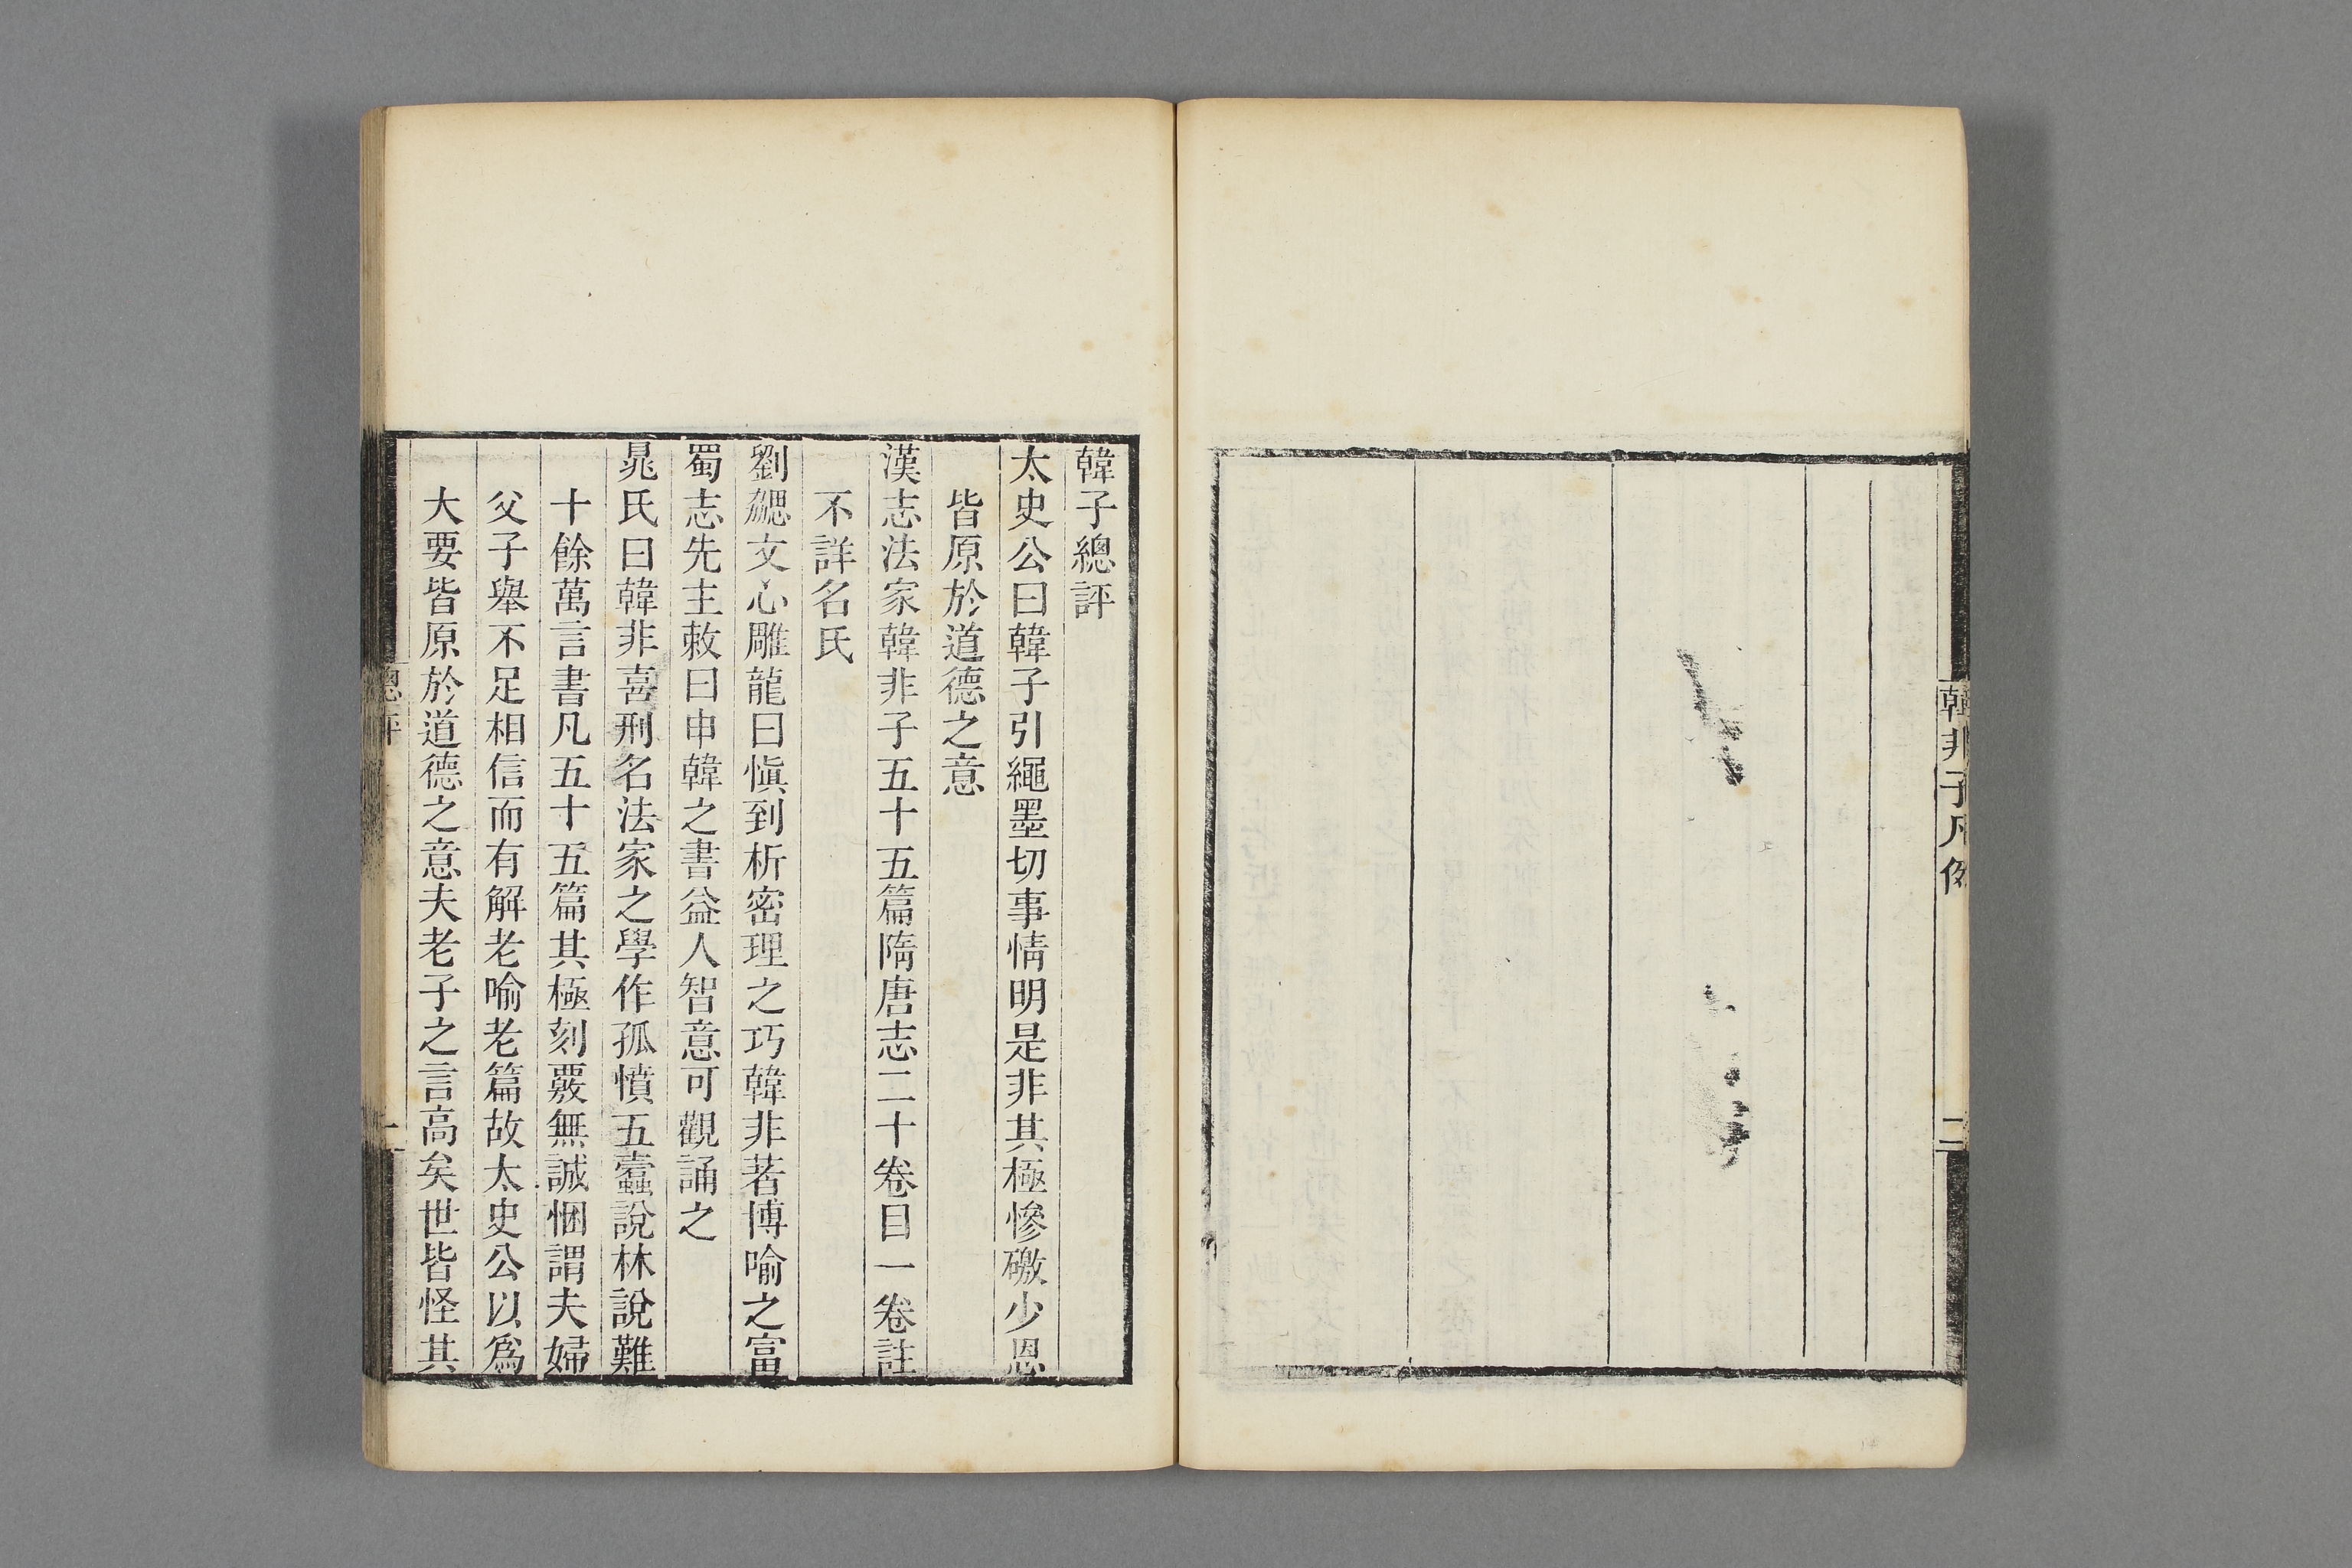 韓非子凡例
二
韓子總評
太史公曰韓子引繩墨切事情明是非其極慘礉少恩
皆原於道德之意
漢志法家韓非子五十五篇隋唐志二十卷目一卷註
不詳名氏
劉勰文心雕龍曰愼到析密理之巧韓非著博喻之富
蜀志先主敕曰申韓之書益人智意可觀誦之
晁氏曰韓非喜刑名法家之學作孤憤五蠹說林說難
十餘萬言書凡五十五篇其極刻覈無誠悃謂夫婦
父子舉不足相信而有解老喻老篇故太史公以爲
大要皆原於道德之意夫老子之言高矣世皆怪其
總評
一